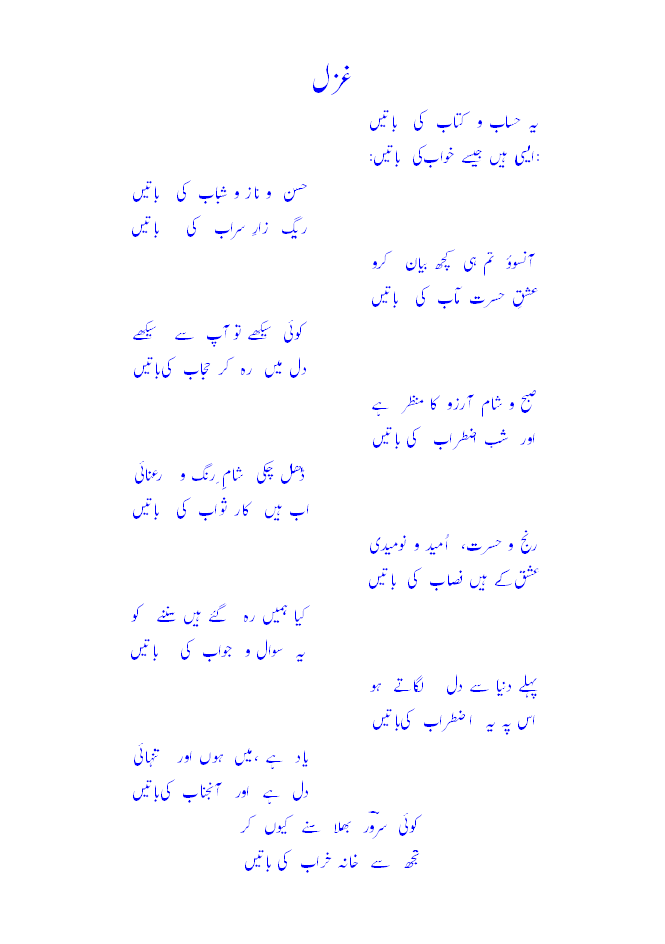 غزل
یہ حساب و کتاب کی باتیں
:ایسی ہیں جیسے خواب کی باتیں:
حسن و ناز و شباب کی باتیں
ریگ زارِ سراب کی باتیں
آنسوؤ تم ہی کچھ بیان کرو
عشق حسرت مآب کی باتیں
کوئی سیکھے تو آپ سے سیکھے
دل میں رہ کر حجاب کی باتیں
صبح و شام آرزو کا منظر ہے
اور شب اضطراب کی باتیں
ڈھل چکی شامِ رنگ و رعنائی
اب ہیں کار ثواب کی باتیں
رنج و حسرت، اُمید و نومیدی
عشق کے ہیں نصاب کی باتیں
کیا ہمیں رہ گئے ہیں سننے کو
یہ سوال و جواب کی باتیں
پہلے دنیا سے دل لگاتے ہو
اس پہ یہ اضطراب کی باتیں
یاد ہے ،میں ہوں اور تنہائی
دل ہے اور آنجناب کی باتیں
کوئی سرورؔ بھلا سنے کیوں کر
تجھ سے خانہ خراب کی باتیں